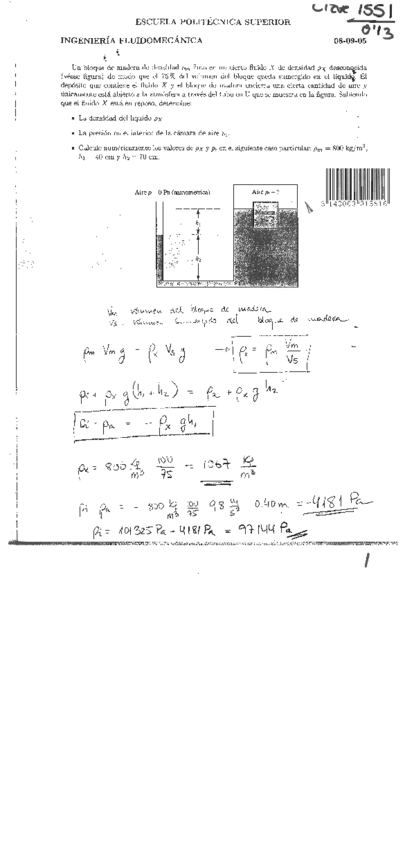 Clave 1551
0'13
ESCUELA POLITÉCNICA SUPERIOR
INGENIERÍA FLUIDOMECÁNICA 08-09-05
Un bloque de madera de densidad ρm flota en un cierto fluido X de densidad ρX desconocida
(véase figura) de modo que el 75% del volumen del bloque queda sumergido en el líquido. El
depósito que contiene el fluido X y el bloque de madera encierra una cierta cantidad de aire y
únicamente está abierto a la atmósfera a través del tubo en U que se muestra en la figura. Sabiendo
que el fluido X está en reposo, determine:
• La densidad del líquido ρX
• La presión en el interior de la cámara de aire
• Calcule numéricamente los valores de ρX y pi en el siguiente caso particular: ρm = 800 kg/m³,
h1 = 40 cm y h2 = 70 cm.
Aire p = 0 Pa (manométrica) Aire pi = ?
h1
h2
3140003015816
Vm volumen del bloque de madera
Vs volumen sumergido del bloque de madera
ρm Vm g = ρx Vs g → ρx = ρm Vm/Vs
pi + ρx g (h1 + h2) = pa + ρx g h2
pi - pa = - ρx g h1
ρx = 800 kg/m³ 100/75 = 1067 kg/m³
pi - pa = - 800 kg/m³ 100/75 9,8 m/s² 0.40 m = -4181 Pa
pi = 101325 Pa - 4181 Pa = 97144 Pa
1